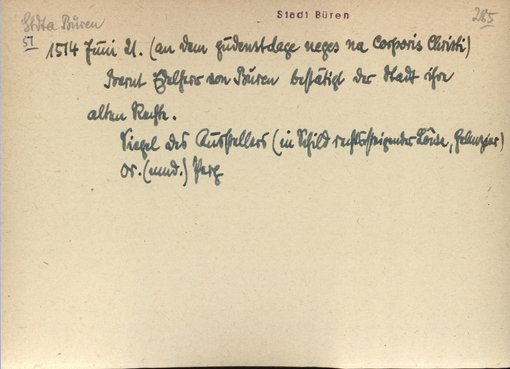 Stadt Büren
StdtA Büren
285
51
1514 Juni 21. (an dem gudenstdage neges na Corporis Christi)
Bernt Edelherr von Büren bestätigt der Stadt ihre
alten Rechte.
Siegel des Ausstellers (in Schild rechtssteigender Löwe, Helmzier)
Or. (mnd.) Perg